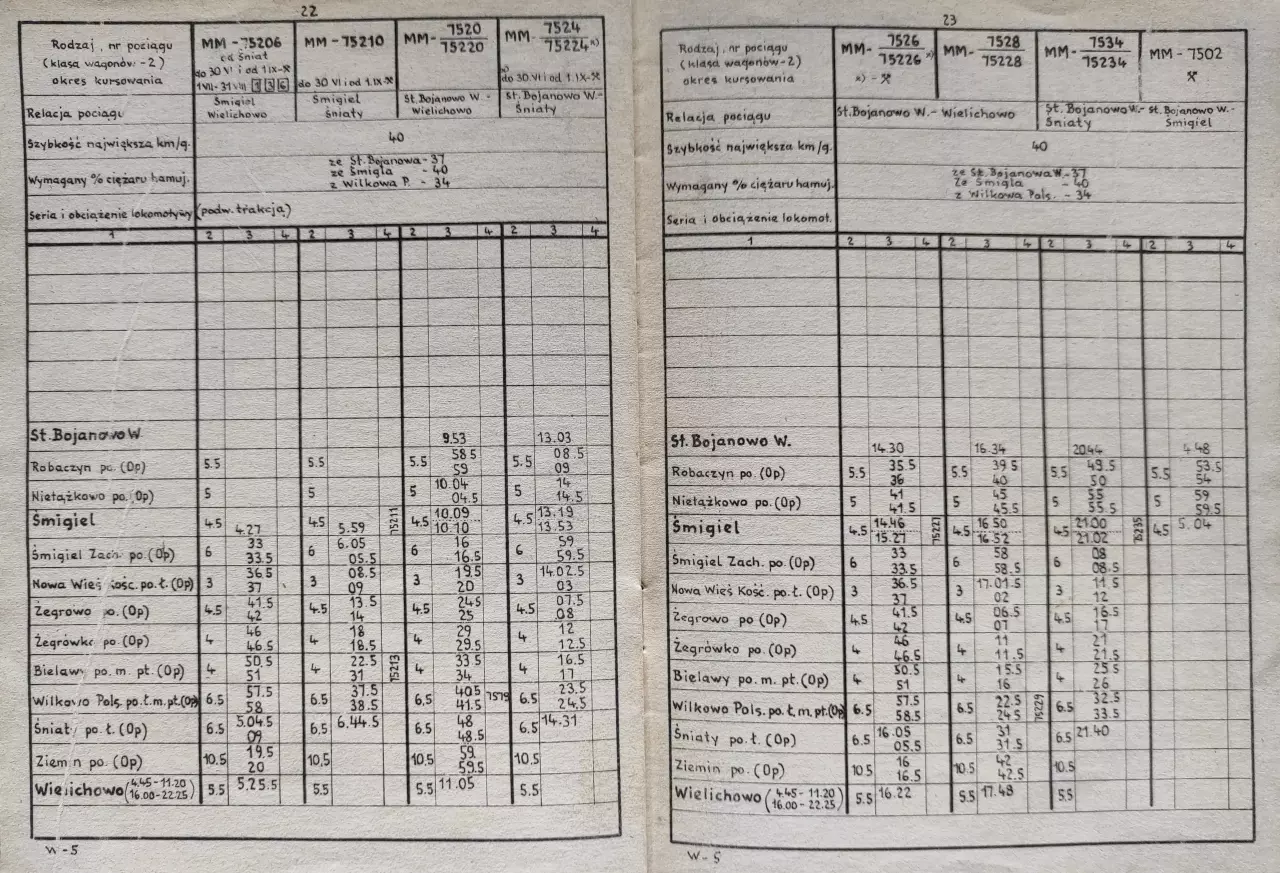 22
Rodzaj, nr pociągu
(klasa wagonów - 2)
okres kursowania
MM - 75206
od Śniat
do 30 VI i od 1 IX-⚒
1 VII - 31 VIII 1 3 6
MM - 75210
do 30 VI i od 1.IX-⚒
MM- 7520/75220
MM- 7524/75224 x)
x) do 30.VI i od 1.IX-⚒
Relacja pociągu
Śmigiel Wielichowo
Śmigiel Śniaty
St. Bojanowo W - Wielichowo
St. Bojanowo W.- Śniaty
Szybkość największa km/g. 40
Wymagany % ciężaru hamuj.
ze St. Bojanowa - 37
ze Śmigla - 40
z Wilkowa P. - 34
Seria i obciążenie lokomotywy (podw. trakcja)
1 2 3 4 2 3 4 2 3 4 2 3 4
St. Bojanowo W 9.53 13.03
Robaczyn po. (Op) 5.5 5.5 5.5 58.5 59 5.5 08.5 09
Nietążkowo po. (Op) 5 5 5 10.04 04.5 5 14 14.5
Śmigiel 4.5 4.27 4.5 5.59 75211 4.5 10.09 10.10 4.5 13.19 13.53
Śmigiel Zach. po. (Op) 6 33 33.5 6 6.05 05.5 6 16 16.5 6 59 59.5
Nowa Wieś Kośc. po. ł. (Op) 3 36.5 37 3 08.5 09 3 19.5 20 3 14.02.5 03
Żegrowo po. (Op) 4.5 41.5 42 4.5 13.5 14 4.5 24.5 25 4.5 07.5 08
Żegrówko po. (Op) 4 46 46.5 4 18 18.5 4 29 29.5 4 12 12.5
Bielawy po. m. pt. (Op) 4 50.5 51 4 22.5 31 75213 4 33.5 34 4 16.5 17
Wilkowo Pols. po. ł. m. pt. (Op) 6.5 57.5 58 6.5 37.5 38.5 6,5 40.5 41.5 7519 6.5 23.5 24.5
Śniaty po. ł. (Op) 6.5 5.04.5 09 6.5 6.44.5 6.5 48 48.5 6.5 14.31
Ziemin po. (Op) 10.5 19.5 20 10,5 10,5 59. 59.5 10.5
Wielichowo (4.45-11.20 16.00-22.25) 5.5 5.25.5 5.5 5.5 11.05 5.5
W-5
23
Rodzaj, nr pociągu
(klasa wagonów - 2)
okres kursowania
MM- 7526/75226 x)
x) - ⚒
MM- 7528/75228
MM- 7534/75234
MM - 7502
⚒
Relacja pociągu
St. Bojanowo W. - Wielichowo
St. Bojanowo W.- Śniaty
St. Bojanowo W.- Śmigiel
Szybkość największa km/g. 40
Wymagany % ciężaru hamuj.
ze St. Bojanowa W. - 37
Ze Śmigla - 40
z Wilkowa Pols. - 34
Seria i obciążenie lokomot.
1 2 3 4 2 3 4 2 3 4 2 3 4
St. Bojanowo W. 14.30 16.34 20.44 4.48
Robaczyn po. (Op) 5.5 35.5 36 5.5 39.5 40 5.5 49.5 50 5.5 53.5 54
Nietążkowo po. (Op) 5 41 41.5 5 45 45.5 5 55 55.5 5 59 59.5
Śmigiel 4.5 14.46 15.27 75227 4.5 16.50 16.52 4.5 21.00 21.02 75235 4.5 5.04
Śmigiel Zach. po. (Op) 6 33 33.5 6 58 58.5 6 08 08.5
Nowa Wieś Kość. po. ł. (Op) 3 36.5 37 3 17.01.5 02 3 11.5 12
Żegrowo po (Op) 4.5 41.5 42 4.5 06.5 07 4.5 16.5 17
Żegrówko po. (Op) 4 46 46.5 4 11 11.5 4 21 21.5
Bielawy po. m. pt. (Op) 4 50.5 51 4 15.5 16 4 25.5 26
Wilkowo Pols. po. ł. m. pt. (Op) 6.5 57.5 58.5 6.5 22.5 24.5 75229 6.5 32.5 33.5
Śniaty po. ł. (Op) 6.5 16.05 05.5 6.5 31 31.5 6.5 21.40
Ziemin po. (Op) 10.5 16 16.5 10.5 42 42.5 10.5
Wielichowo (4.45- 11.20 16.00- 22.25) 5.5 16.22 5.5 17.48 5.5
W-5